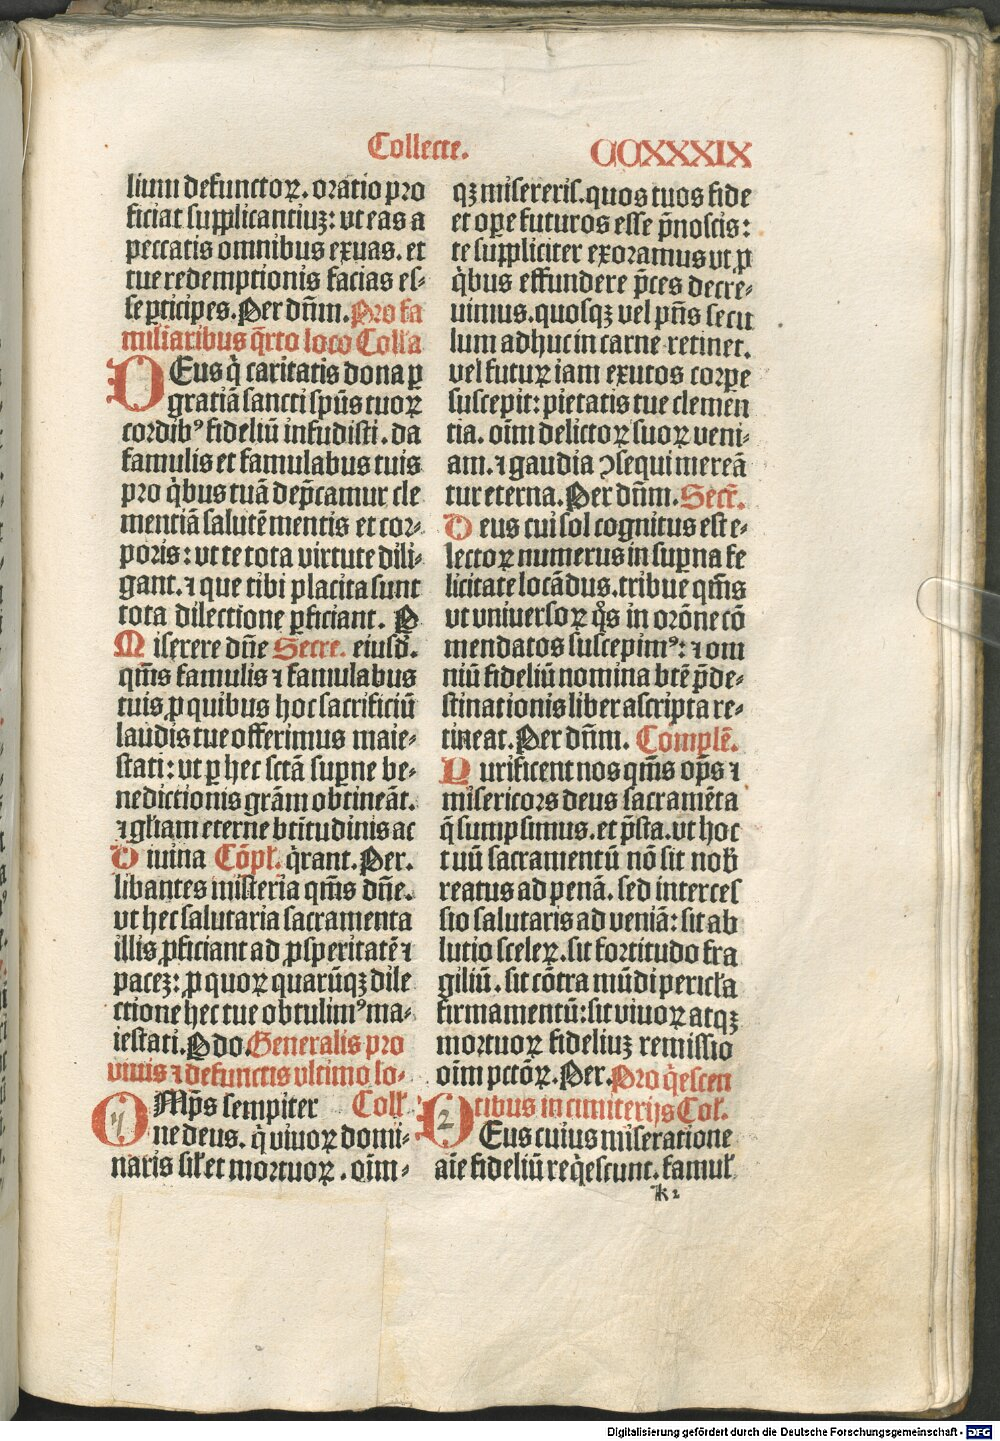 Collecte.
CCXXXIX
lium defunctoꝝ. oratio pro
ficiat supplicantiuꝫ: vt eas a
peccatis omnibus exuas. et
tue redemptionis facias es⸗
se ꝑticipes. Per dñm. Pro fa
miliaribus q̃rto loco Coll'a
DEus q̇ caritatis dona ꝑ
gratiã sancti spũs tuoꝝ
cordibꝰ fideliũ infudisti. da
famulis et famulabus tuis
pro q̇bus tuã dep̃camur cle
mentiã salutẽ mentis et cor⸗
poris: vt te tota virtute dili⸗
gant. ⁊ que tibi placita sunt
tota dilectione ꝑficiant. P
Miserere dñe Secre. eiusd̃.
qm̃s famulis ⁊ famulabus
tuis ꝓ quibus hoc sacrificiũ
laudis tue offerimus maie⸗
stati: vt ꝑ hec sctã superne be⸗
nedictionis grãm obtineãt.
⁊ gl'iam eterne btĩtudinis ac
Diuina Cõpl'. q̇rant. Per.
libantes misteria qm̃s dñe.
vt hec salutaria sacramenta
illis ꝓficiant ad ꝓsperitatẽ ⁊
paceꝫ: ꝓ quoꝝ quarũqꝫ dile
ctione hec tue obtulimꝰ ma⸗
iestati. Qdo. Generalis pro
viuis ⁊ defunctis vltimo lo⸗
OMp̃s sempiter Coll'.
ne deus. q̇ viuoꝝ domi⸗
naris sil'et mortuoꝝ. oĩm⸗
qꝫ misereris. quos tuos fide
et oꝑe futuros esse p̃noscis:
te suppliciter exoramus vt ꝓ
q̇bus effundere p̃ces decre⸗
uimus. quosqꝫ vel pñs secu
lum adhuc in carne retinet.
vel futuꝝ iam exutos corꝑe
suscepit: pietatis tue clemen
tia. oĩm delictoꝝ suoꝝ veni⸗
am. ⁊ gaudia ꝯsequi mereã
tur eterna. Per dñm. Secr̃.
Deus cui sol cognitus est e⸗
lectoꝝ numerus in suꝑna fe
licitate locãdus. tribue qm̃s
vt vniuersoꝝ q̊s in orõne cõ
mendatos suscepimꝰ: ⁊ om
niũ fideliũ nomina btẽ p̃de⸗
stinationis liber ascripta re⸗
tineat. Per dñm. Complẽ.
Purificent nos qm̃s op̃s ⁊
misericors deus sacramẽta
q̃ sumpsimus. et p̃sta. vt hoc
tuũ sacramentũ nõ sit nob'
reatus ad penã. sed interces
sio salutaris ad veniã: sit ab
lutio sceleꝝ. sit fortitudo fra
giliũ. sit cõtra mũdi pericl'a
firmamentũ: sit viuoꝝ atqꝫ
mortuoꝝ fideliuꝫ remissio
oĩm pctõꝝ. Per. Pro q̇escen
tibus in cimiterijs Col'.
DEus cuius miseratione
aĩe fideliũ req̇escunt. famul'
k 2
1
2
Digitalisierung gefördert durch die Deutsche Forschungsgemeinschaft - DFG